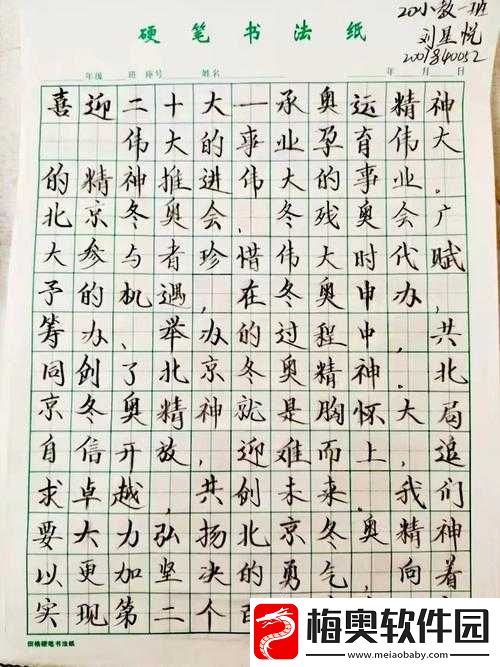 20小教一班
刘星悦
2007840052
硬笔书法纸
年级 班 座号 姓名 年 月 日
喜迎二十大一承奥运精神
伟大的事业孕育伟大
的精神推进伟大的事业。
北京冬奥会、冬残奥会广
大参与者珍惜伟大时代赋
予的机遇,在冬奥申办,
筹办、举办的过程中,共
同创了北京冬奥精神。北
京冬奥精神就是胸怀大局
自信开放,迎难而上,追
求卓越,共创未来。我们
要大力弘扬北京冬奥精神
以更加坚决的勇气,向着
实现第二个百
田格硬笔书法纸
梅奥软件园
www.meiaobaby.com